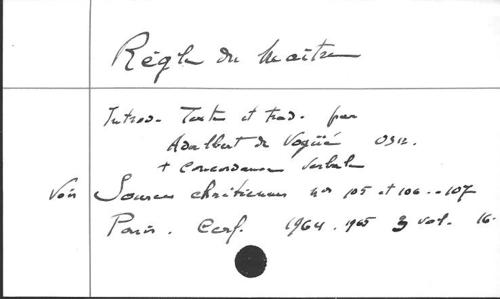 Règle du Maître
Introd. Texte et trad. par
Adalbert de Vogüé OSB.
+ Concordance verbale
Voir Sources chrétiennes nos 105 et 106 - 107
Paris. Cerf. 1964. 1965 3 vol. 16